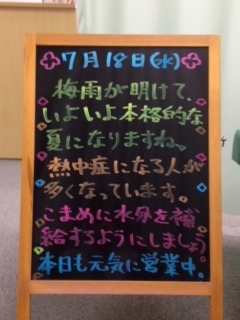 7月18日(水)
梅雨が明けて、
いよいよ本格的な
夏になりますね。
熱中症になる人が
多くなっています。
こまめに水分を補
給するようにしましょう
本日も元気に営業中。